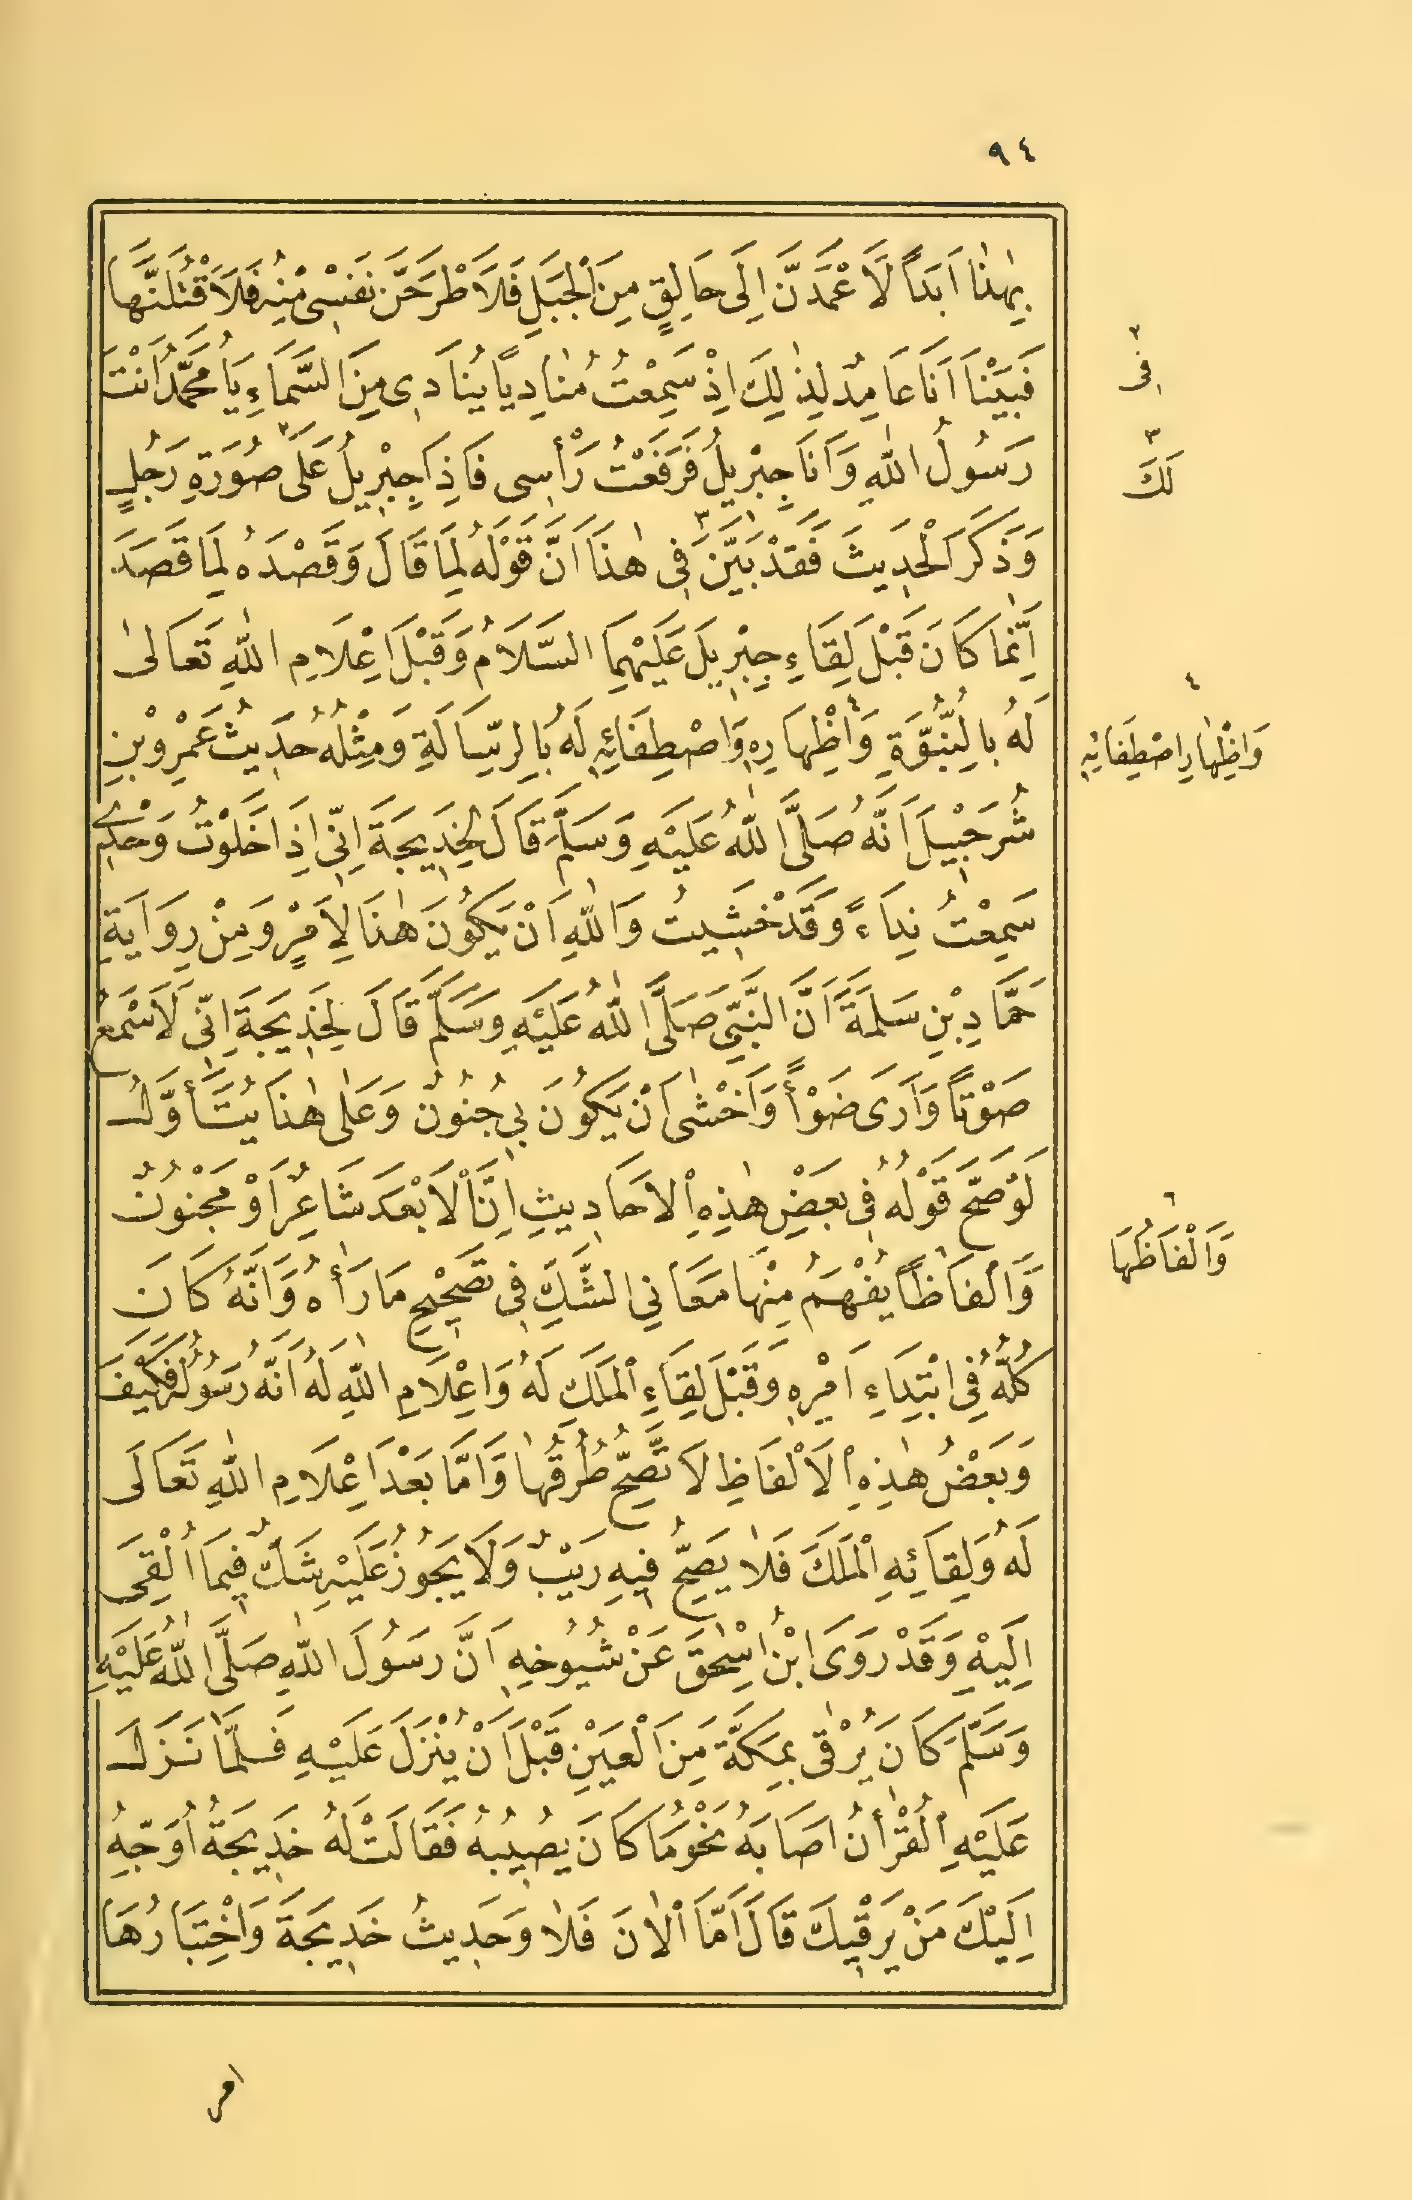 ٩٤
بِهٰذَا اَبَدًا لَاَعْمَدَنَّ اِلَى حَالِقٍ مِنَ الْجَبَلِ فَلَاَطْرَحَنَّ نَفْسِى مِنْهُ فَلَاَقْتُلَنَّهَا
فَبَيْنَا اَنَا عَامِدٌ لِذٰلِكَ اِذْ سَمِعْتُ مُنَادِيًا يُنَادِى مِنَ السَّمَاءِ يَا مُحَمَّدُ اَنْتَ
رَسُولُ اللّٰهِ وَاَنَا جِبْرِيلُ فَرَفَعْتُ رَأْسِى فَاِذَا جِبْرِيلُ عَلَى٢ صُورَةِ رَجُلٍ
وَذَكَرَ الْحَدِيثَ فَقَدْ بَيَّنَ٣ فِى هٰذَا اَنَّ قَوْلَهُ لِمَا قَالَ وَقَصْدَهُ لِمَا قَصَدَ
اِنَّمَا كَانَ قَبْلَ لِقَاءِ جِبْرِيلَ عَلَيْهِمَا السَّلَامُ وَقَبْلَ اِعْلَامِ اللّٰهِ تَعَالىٰ
لَهُ بِالنُّبُوَّةِ وَاِظْهَارِهِ٤ وَاصْطِفَائِهِ لَهُ بِالرِّسَالَةِ وَمِثْلُهُ حَدِيثُ عَمْرِو بْنِ
شُرَحْبِيلَ اَنَّهُ صَلَّى اللّٰهُ عَلَيْهِ وَسَلَّمَ قَالَ لِخَدِيجَةَ اِنِّى اِذَا خَلَوْتُ وَحْدِى
سَمِعْتُ نِدَاءً وَقَدْ خَشِيتُ وَاللّٰهِ اَنْ يَكُونَ هٰذَا لِاَمْرٍ وَمِنْ رِوَايَةِ
حَمَّادِ بْنِ سَلَمَةَ اَنَّ النَّبِىَّ صَلَّى اللّٰهُ عَلَيْهِ وَسَلَّمَ قَالَ لِخَدِيجَةَ اِنِّى لَاَسْمَعُ
صَوْتًا وَاَرَى ضَوْأً وَاَخْشٰى اَنْ يَكُونَ بِى جُنُونٌ وَعَلٰى هٰذَا يُتَأَوَّلُ
لَوْ صَحَّ قَوْلُهُ فِى بَعْضِ هٰذِهِ الْاَحَادِيثِ اِنَّ الْاَبْعَدَ شَاعِرٌ اَوْ مَجْنُونٌ
وَاَلْفَاظًا يُفْهَمُ مِنْهَا مَعَانِى الشَّكِّ فِى تَصْحِيحِ مَا رَاٰهُ وَاَنَّهُ كَانَ
كُلُّهُ فِى ابْتِدَاءِ اَمْرِهِ وَقَبْلَ لِقَاءِ الْمَلَكِ لَهُ وَاِعْلَامِ اللّٰهِ لَهُ اَنَّهُ رَسُولُهُ فَكَيْفَ
وَبَعْضُ هٰذِهِ الْاَلْفَاظِ لَا تَصِحُّ طُرُقُهَا وَاَمَّا بَعْدَ اِعْلَامِ اللّٰهِ تَعَالَى
لَهُ وَلِقَائِهِ الْمَلَكَ فَلَا يَصِحُّ فِيهِ رَيْبٌ وَلَا يَجُوزُ عَلَيْهِ شَكٌّ فِيمَا اُلْقِىَ
اِلَيْهِ وَقَدْ رَوَى ابْنُ اِسْحٰقَ عَنْ شُيُوخِهِ اَنَّ رَسُولَ اللّٰهِ صَلَّى اللّٰهُ عَلَيْهِ
وَسَلَّمَ كَانَ يُرْقٰى بِمَكَّةَ مِنَ الْعَيْنِ قَبْلَ اَنْ يُنْزَلَ عَلَيْهِ فَلَمَّا نَزَلَ
عَلَيْهِ الْقُرْاٰنُ اَصَابَهُ نَحْوُ مَا كَانَ يُصِيبُهُ فَقَالَتْ لَهُ خَدِيجَةُ اُوَجِّهُ
اِلَيْكَ مَنْ يَرْقِيكَ قَالَ اَمَّا الْاٰنَ فَلَا وَحَدِيثُ خَدِيجَةَ وَاخْتِبَارُهَا
امر
٢
فِى
٣
لَكَ
٤
وَاِظْهَارِ اصْطِفَائِهِ
٦
وَالْفَاظُهَا